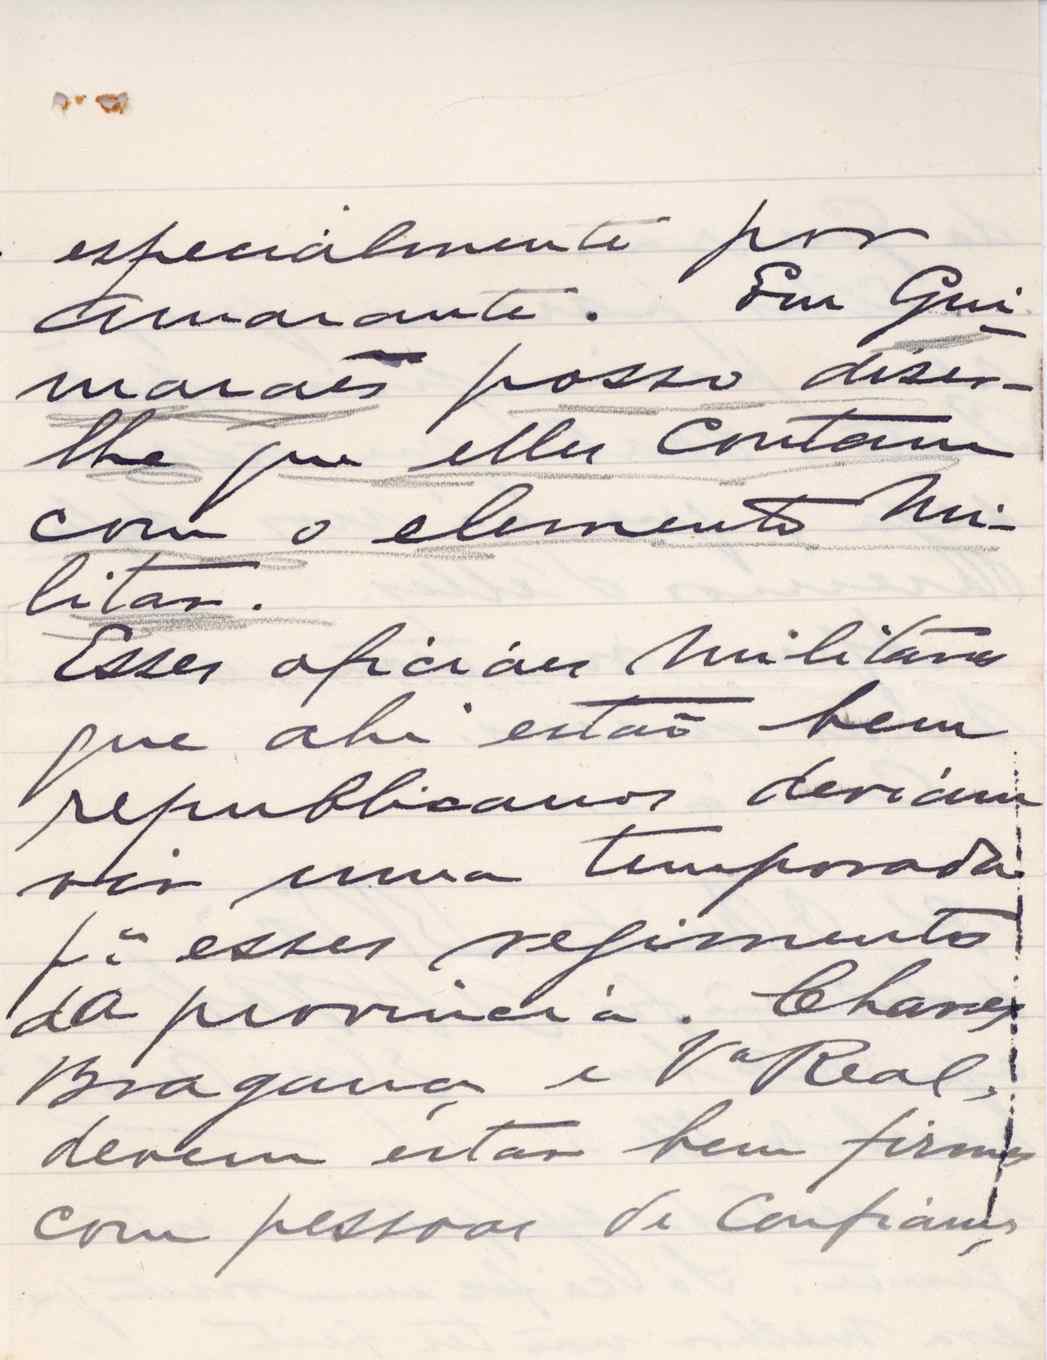 especialmente por
Amarante. Em Gui-
marães posso diser-
lhe que elles contam
com o elemento mi-
litar.
Esses oficiáes militares
que ahi estão bem
republicanos deviám
vir uma temporada
pª esses regimentos
da provincia. Chaves
Bragança e Vª Real,
devem estar bem firmes
com pessoas de confiança